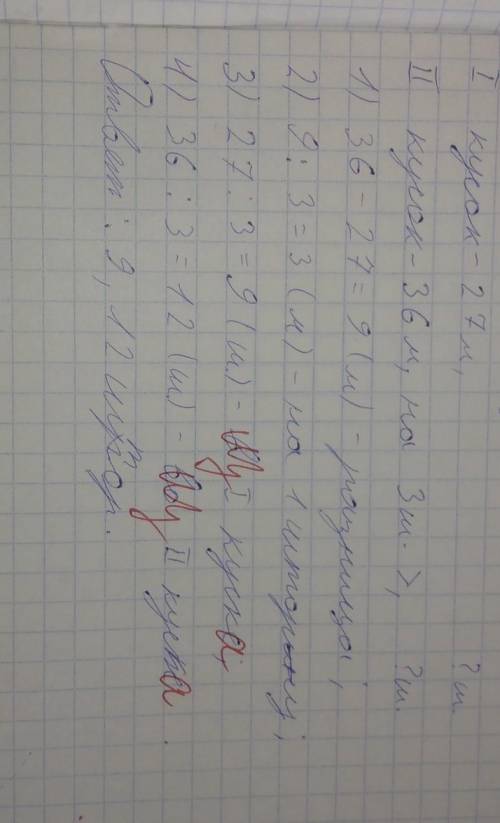 I кусок - 27 м, ? ш.
II кусок - 36 м, на 3 ш. >, ? ш.
1) 36 - 27 = 9 (м) - разница;
2) 9 : 3 = 3 (м) - на 1 шторину;
3) 27 : 3 = 9 (ш) - из I куска;
4) 36 : 3 = 12 (ш) - из II куска.
Ответ: 9, 12 штор.